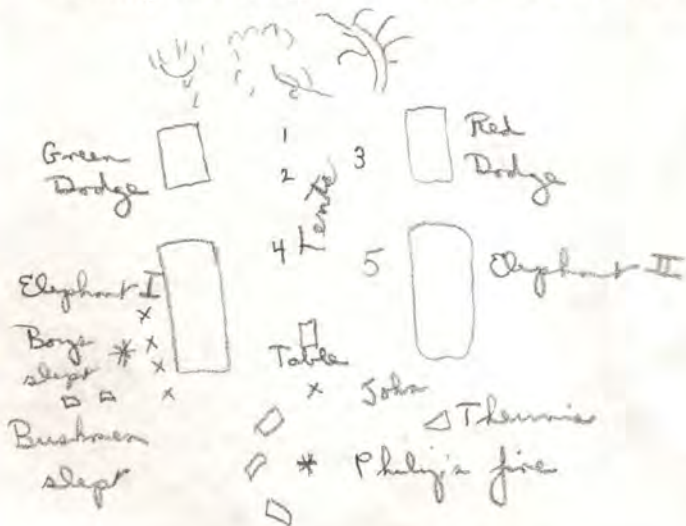 Green
Dodge
1
2
3
Red
Dodge
Tents
4
5
Elephant I
Elephant II
Boys
slept
Table
John
Bushmen
slept
Philip's fire